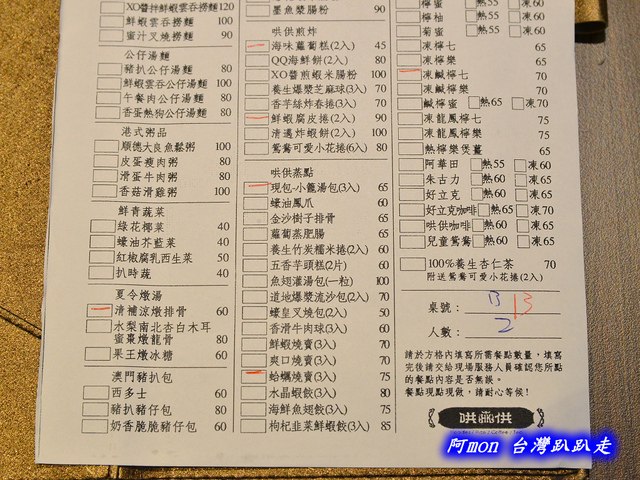 XO醬拌鮮蝦雲吞撈麵 120
鮮蝦雲吞撈麵 100
蜜汁叉燒撈麵 90
公仔湯麵
豬扒公仔湯麵 80
鮮蝦雲吞公仔湯麵 100
午餐肉公仔湯麵 80
香蛋熱狗公仔湯麵 80
港式粥品
順德大良魚鬆粥 100
皮蛋瘦肉粥 80
滑蛋牛肉粥 80
香菇滑雞粥 100
鮮青蔬菜
綠花椰菜 40
蠔油芥藍菜 40
紅椒腐乳西生菜 50
扒時蔬 40
夏令燉湯
清補涼燉排骨 60
水梨南北杏白木耳
蜜棗燉龍骨 80
果王燉冰糖 60
澳門豬扒包
西多士 60
豬扒豬仔包 80
奶香脆脆豬仔包 60
墨魚漿腸粉 90
哄供煎炸
海味蘿蔔糕(2入) 45
QQ海鮮餅(2入) 80
XO醬煎蝦米腸粉 100
養生爆漿芝麻球(3入) 70
香芋絲炸春捲(3入) 70
鮮蝦腐皮捲(2入) 90
清邁炸蝦餅(2入) 100
鴛鴦可愛小花捲(6入) 80
哄供蒸點
現包小籠湯包(3入) 65
蠔油鳳爪 60
金沙樹子排骨 65
蘿蔔蒸肥腸 65
養生竹炭糯米捲(2入) 60
五香芋頭糕(2片) 60
魚翅灌湯包(一粒) 100
道地爆漿流沙包(2入) 70
蠔皇叉燒包(2入) 50
香滑牛肉球(3入) 60
鮮蝦燒賣(3入) 70
爽口燒賣(3入) 70
蛤蠣燒賣(3入) 75
水晶蝦餃(3入) 80
海鮮魚翅餃(3入) 75
枸杞韭菜鮮蝦餃(3入) 85
檸蜜 熱55 凍60
檸柚 熱55 凍60
菊蜜 熱55 凍60
凍檸七 65
凍檸樂 65
凍鹹檸七 70
凍鹹檸樂 70
鹹檸蜜 熱65 凍70
凍龍鳳檸七 65
凍龍鳳檸樂 65
熱檸樂煲薑 65
阿華田 熱55 凍60
朱古力 熱60 凍65
好立克 熱60 凍65
好立克咖啡 熱65 凍70
哄供咖啡 熱60 凍65
兒童鴛鴦 熱60 凍65
100%養生杏仁茶 70
附送鴛鴦可愛小花捲(2入)
桌號： B 13
人數： 2
請於方格內填寫所需餐點數量，填寫
完後請交給現場服務人員確認您所點
的餐點內容是否無誤。
餐點現點現做，請耐心等候！
哄供
阿mon 台灣趴趴走